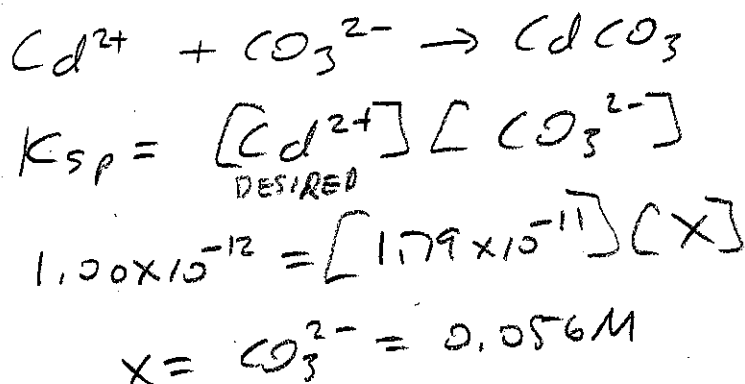 Cd²⁺ + CO₃²⁻ → CdCO₃
Ksp = [Cd²⁺] [CO₃²⁻]
DESIRED
1.00x10⁻¹² = [1.79x10⁻¹¹][X]
X = CO₃²⁻ = 0.056M